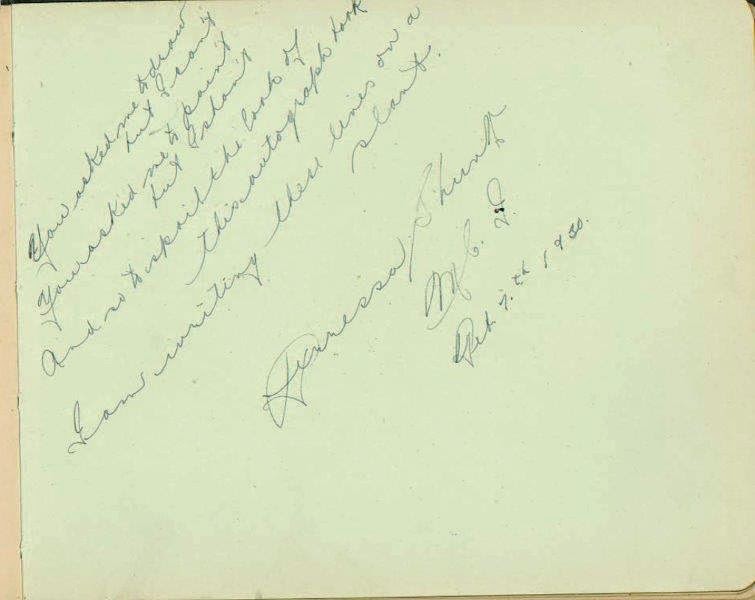 You asked me to draw
but I can't
You asked me to paint
but I shan't
And so to spoil the look of
this autograph book
I am writing these lines on a
slant.
Hunt
Feb. 7. th 1930.